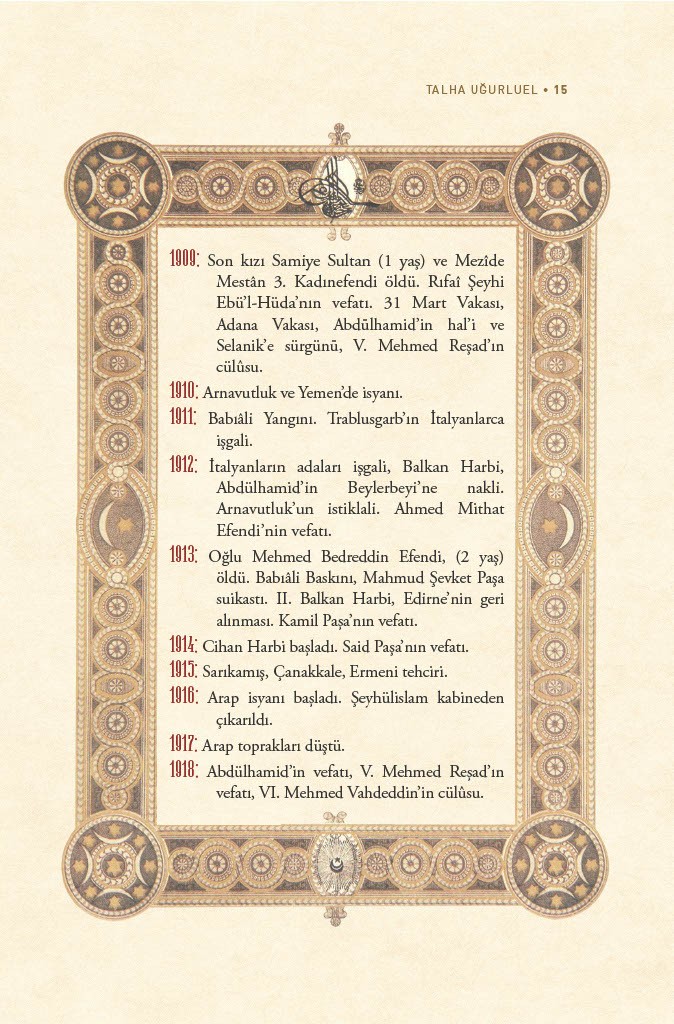 TALHA UĞURLUEL • 15
1909: Son kızı Samiye Sultan (1 yaş) ve Mezîde
Mestân 3. Kadınefendi öldü. Rıfaî Şeyhi
Ebü’l-Hüda’nın vefatı. 31 Mart Vakası,
Adana Vakası, Abdülhamid’in hal’i ve
Selanik’e sürgünü, V. Mehmed Reşad’ın
cülûsu.
1910: Arnavutluk ve Yemen’de isyanı.
1911: Babıâli Yangını. Trablusgarb’ın İtalyanlarca
işgali.
1912: İtalyanların adaları işgali, Balkan Harbi,
Abdülhamid’in Beylerbeyi’ne nakli.
Arnavutluk’un istiklali. Ahmed Mithat
Efendi’nin vefatı.
1913: Oğlu Mehmed Bedreddin Efendi, (2 yaş)
öldü. Babıâli Baskını, Mahmud Şevket Paşa
suikastı. II. Balkan Harbi, Edirne’nin geri
alınması. Kamil Paşa’nın vefatı.
1914: Cihan Harbi başladı. Said Paşa’nın vefatı.
1915: Sarıkamış, Çanakkale, Ermeni tehciri.
1916: Arap isyanı başladı. Şeyhülislam kabineden
çıkarıldı.
1917: Arap toprakları düştü.
1918: Abdülhamid’in vefatı, V. Mehmed Reşad’ın
vefatı, VI. Mehmed Vahdeddin’in cülûsu.